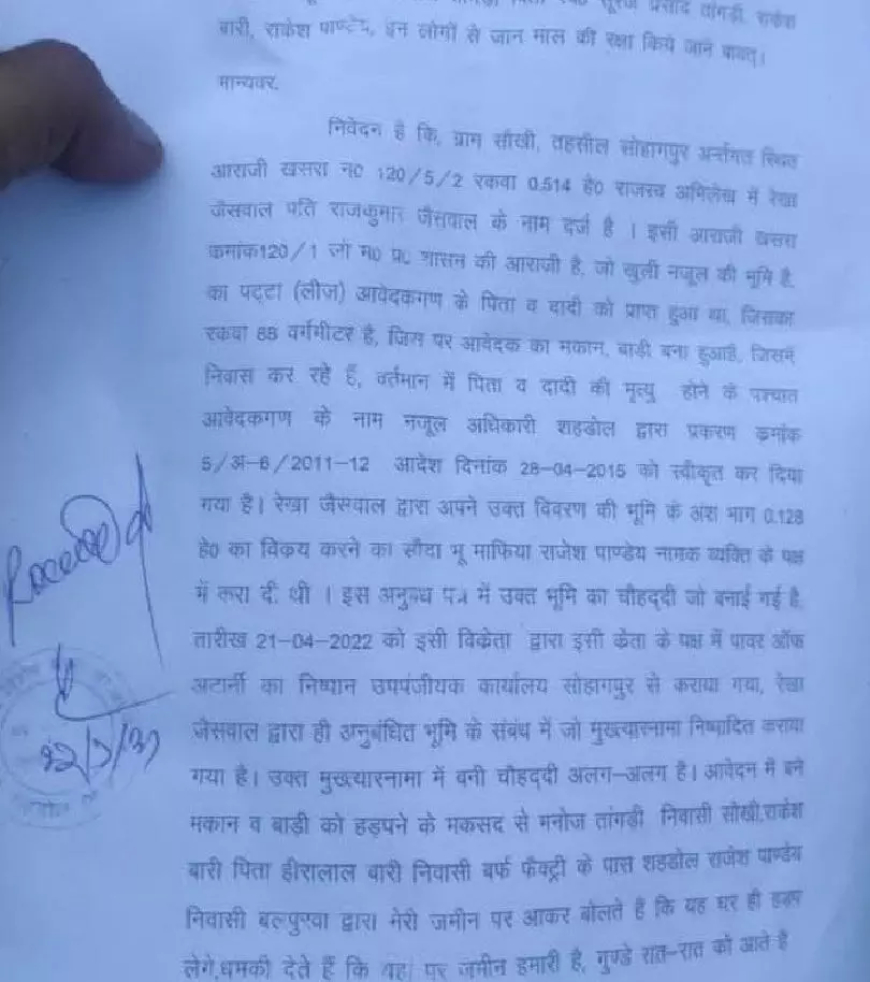 सूरज प्रसाद तांगड़ी, राकेश
बारी, राकेश पाण्डेय, इन लोगों से जान माल की रक्षा किये जाने बावत्।
मान्यवर,
निवेदन है कि, ग्राम सोखी, तहसील सोहागपुर अर्न्तगत स्थित
आराजी खसरा न0 120/5/2 रकवा 0.514 हे0 राजस्व अभिलेख में रेखा
जैसवाल पति राजकुमार जैसवाल के नाम दर्ज है । इसी आराजी खसरा
कमांक120/1 जो म0 प्र0 शासन की आराजी है, जो खुली नजूल की भूमि है,
का पट्टा (लीज) आवेदकगण के पिता व दादी को प्राप्त हुआ था, जिसका
रकवा 88 वर्गमीटर है, जिस पर आवेदक का मकान, बाड़ी बना हुआहै, जिसमें
निवास कर रहे हैं, वर्तमान में पिता व दादी की मृत्यु होने के पश्चात
आवेदकगण के नाम नजूल अधिकारी शहडोल द्वारा प्रकरण क्रमांक
5/अ-6/2011-12 आदेश दिनांक 28-04-2015 को स्वीकृत कर दिया
गया है। रेखा जैसवाल द्वारा अपने उक्त विवरण की भूमि के अंश भाग 0.128
हे0 का विकय करने का सौदा भू माफिया राजेश पाण्डेय नामक व्यक्ति के पक्ष
में करा दी थी । इस अनुबंध पत्र में उक्त भूमि का चौहद्दी जो बनाई गई है,
तारीख 21-04-2022 को इसी विकेता द्वारा इसी केता के पक्ष में पावर ऑफ
अटार्नी का निष्पान उपपंजीयक कार्यालय सोहागपुर से कराया गया, रेखा
जैसवाल द्वारा ही अनुबंधित भूमि के संबंध में जो मुख्त्यारनामा निष्पादित कराया
गया है। उक्त मुख्त्यारनामा में बनी चौहद्दी अलग-अलग है। आवेदन में बने
मकान व बाड़ी को हड़पने के मकसद से मनोज तांगड़ी निवासी सोखी,राकेश
बारी पिता हीरालाल बारी निवासी बर्फ फैक्ट्री के पास शहडोल राजेश पाण्डेय
निवासी बलपुरवा द्वारा मेरी जमीन पर आकर बोलते है कि यह घर ही हड़प
लेगे,धमकी देते हैं कि यहां पर जमीन हमारी है, गुण्डे रात-रात को आते है
Received